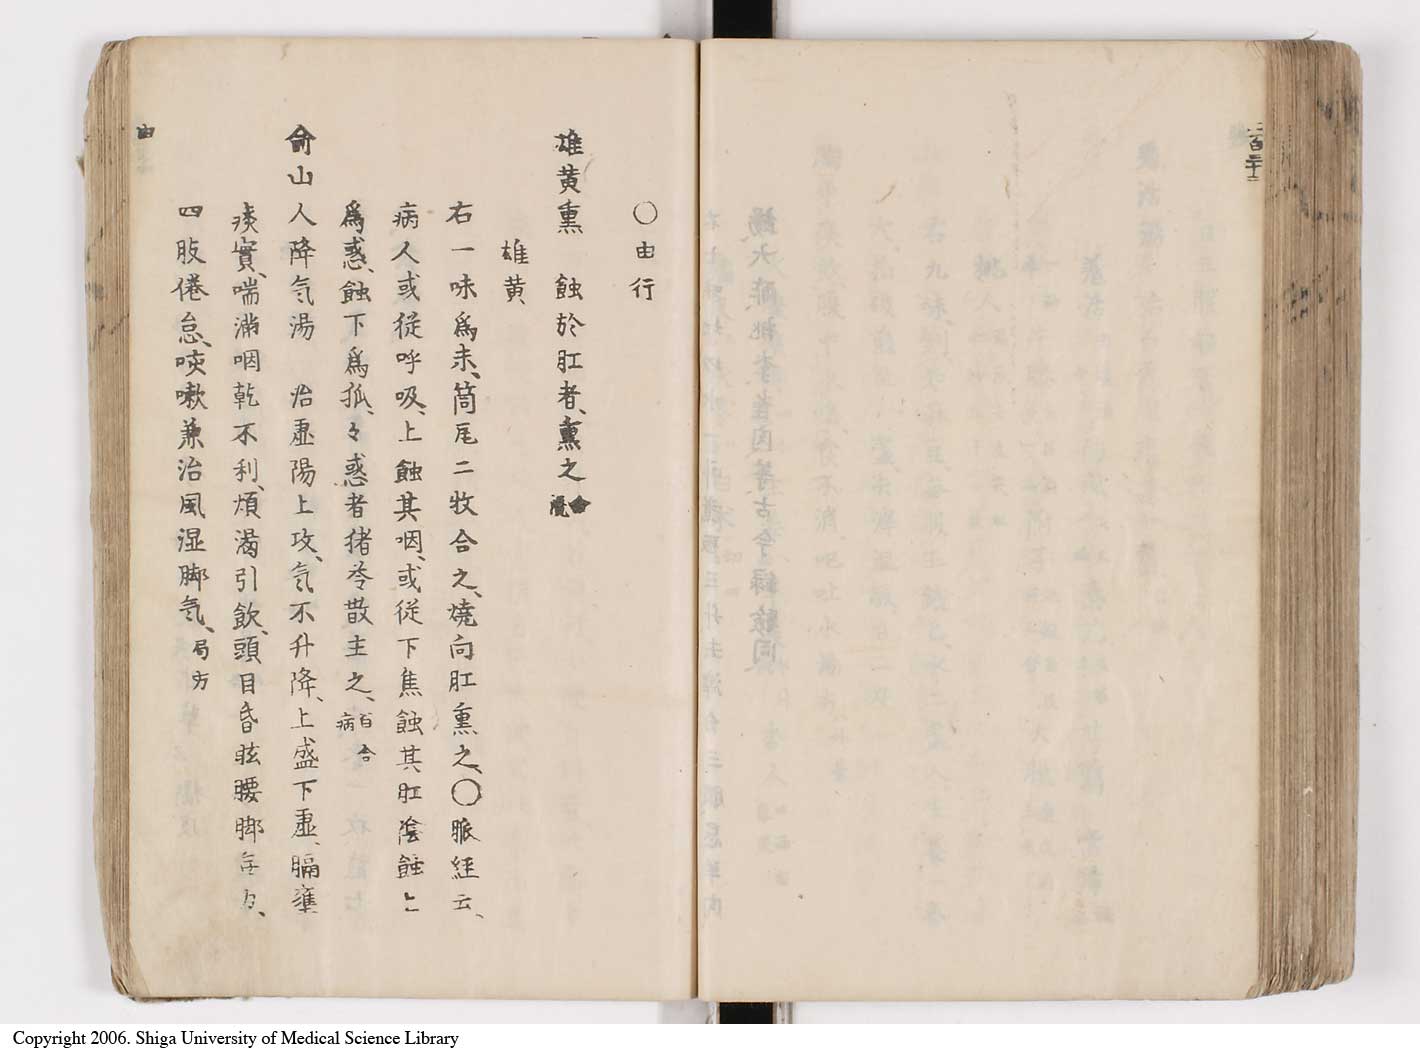 二百三十二
〇由行
雄黄熏 蝕於肛者、熏之
雄黄
右一味為末、筒瓦二枚合之、燒向肛熏之、〇脈経云、
病人或従呼吸、上蝕其咽、或従下焦蝕其肛陰蝕上
為惑、蝕下為狐、々惑者猪苓散主之、百合病
俞山人降気湯 治虚陽上攻、気不升降、上盛下虚、膈壅
痰實、喘満咽乾不利、煩渇引飲、頭目昏眩腰脚
四肢倦怠、咳嗽兼治風湿脚気、局方
由
Copyright 2006. Shiga University of Medical Science Library